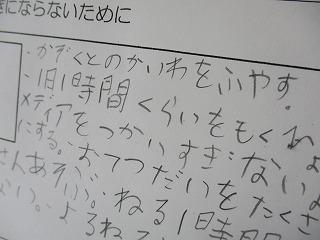 きにならないために
・かぞくとのかいわをふやす。
・1日1時間くらいをもくひょ
メディアをつかいすぎないよ
にする。おてつだいをたくさ
さんあそぶ。ねる1日時間
よるねる